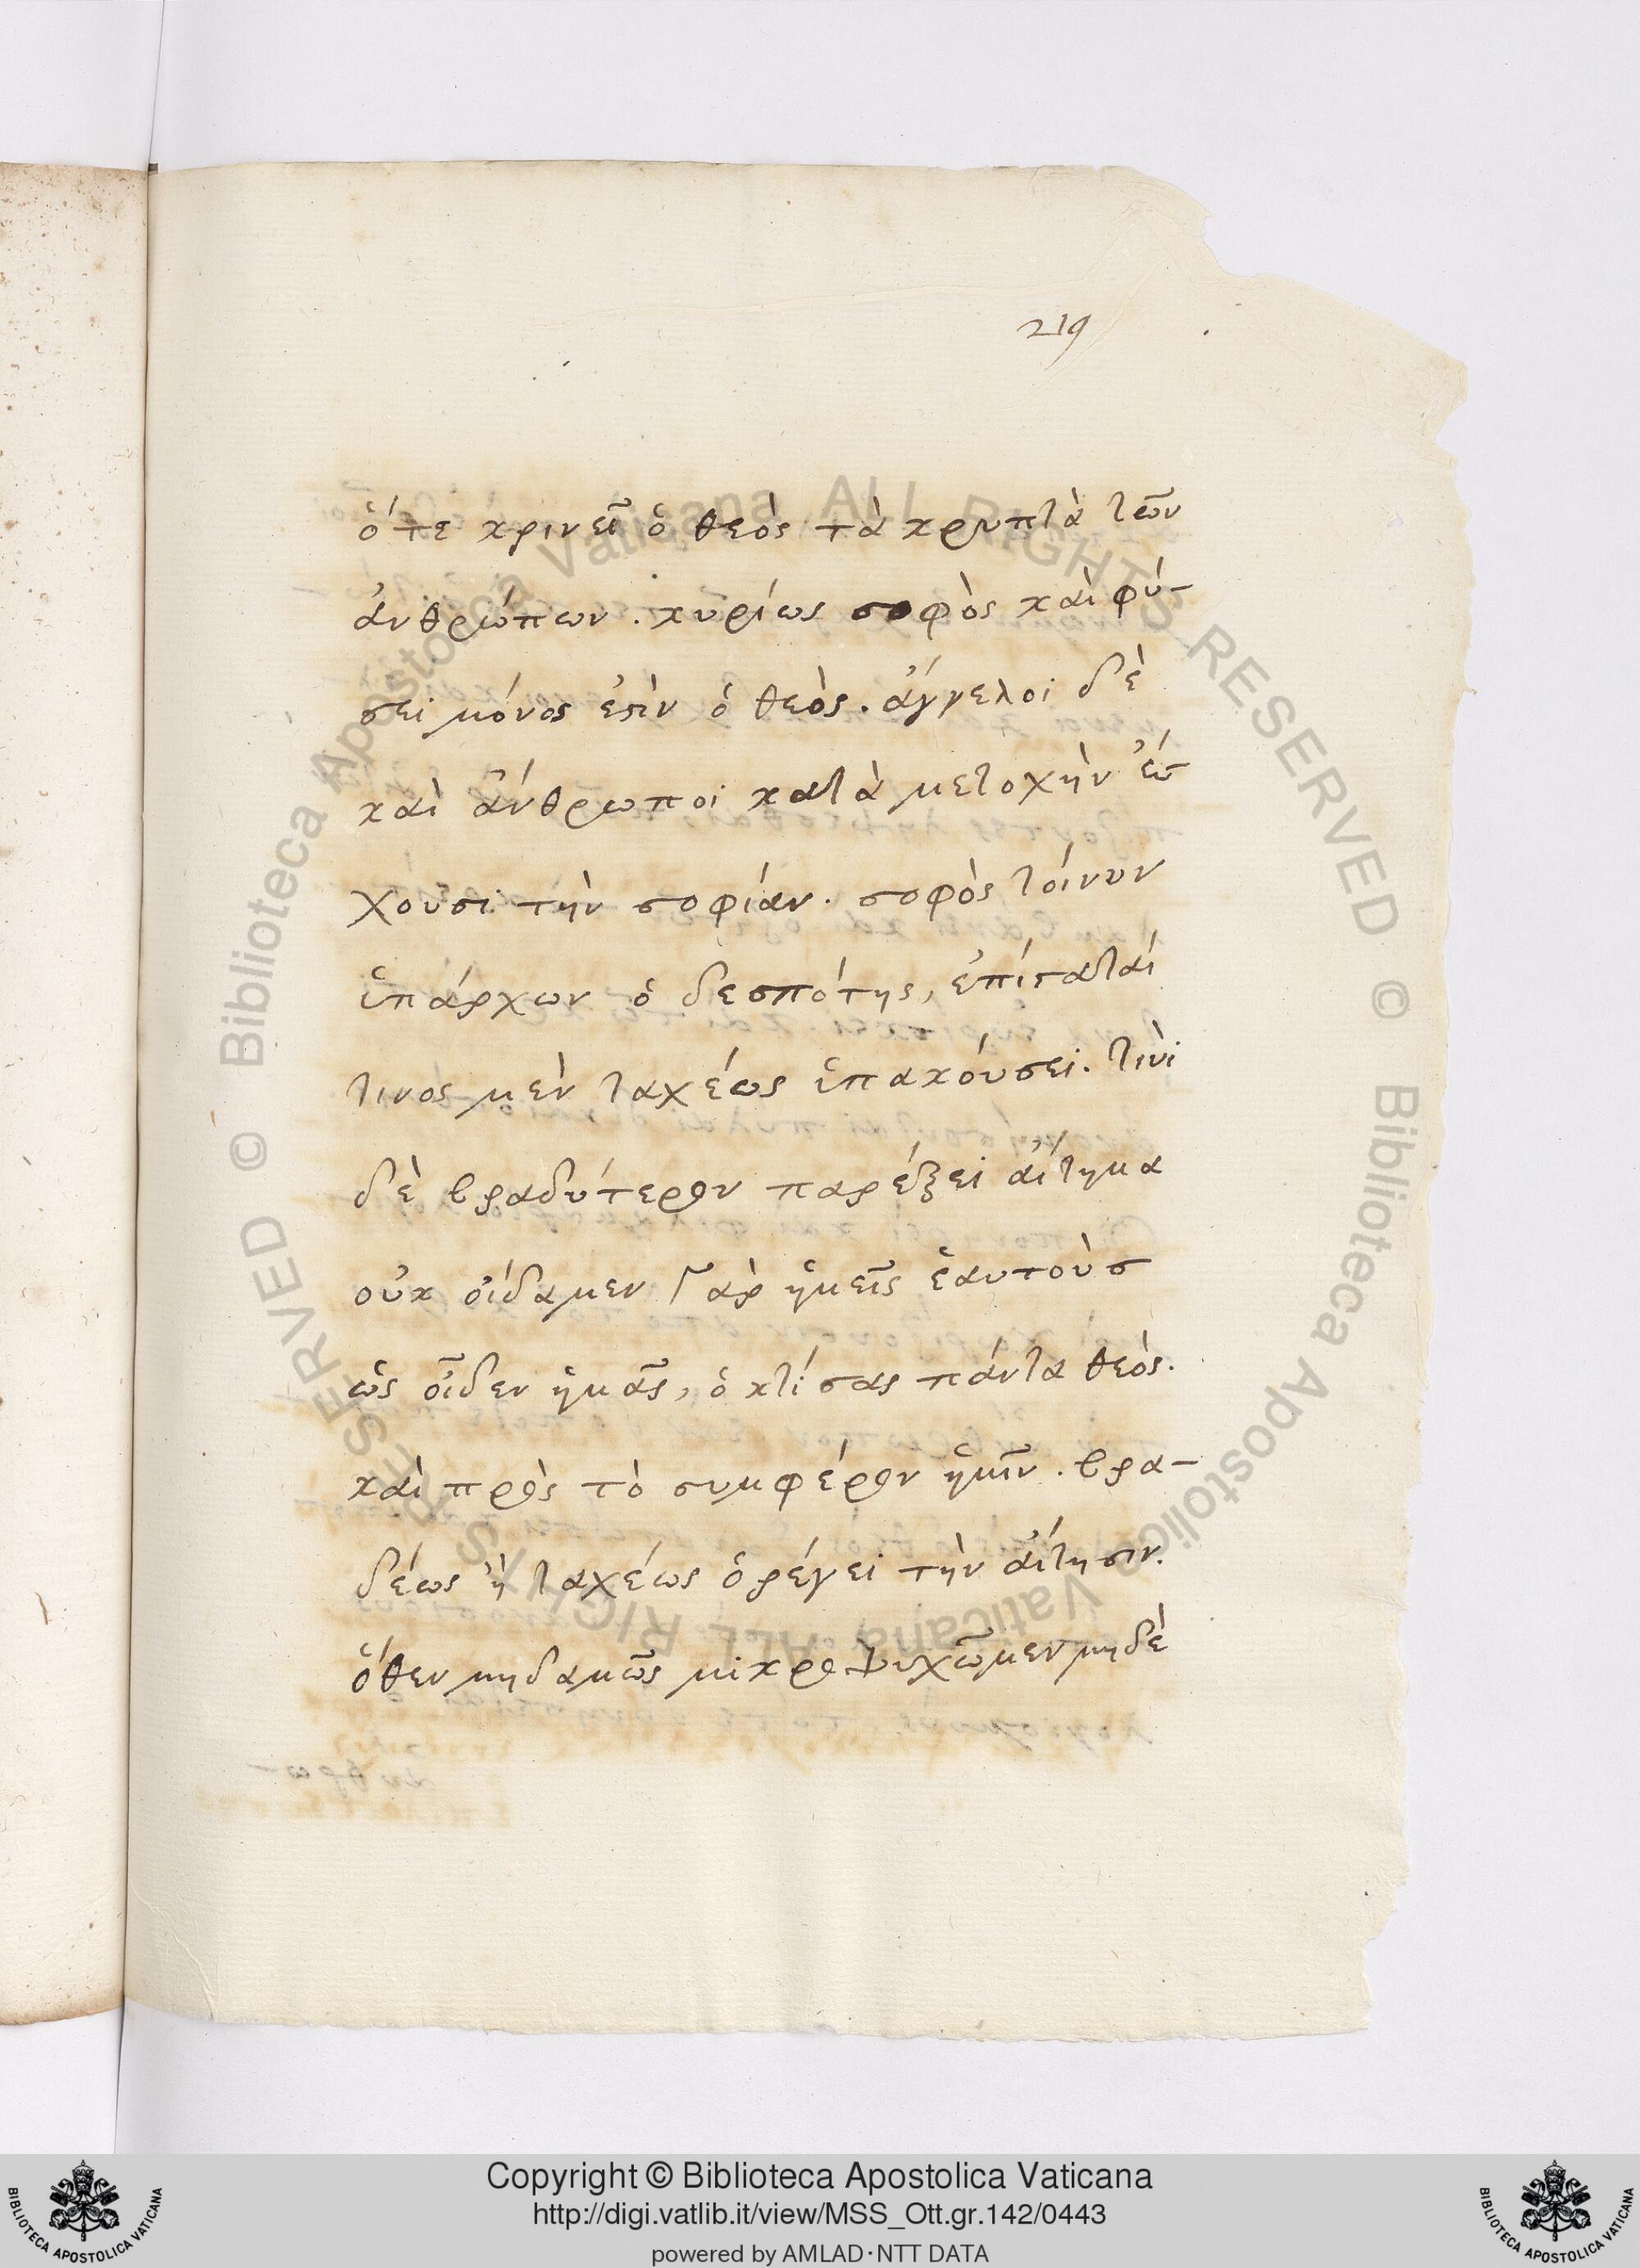 219
ὅτε κρινεῖ ὁ θεὸς τὰ κρυπτὰ τῶν
ἀνθρώπων. κυρίως σοφὸς καὶ φύ-
σει μόνος ἐστὶν ὁ θεὸς. ἄγγελοι δὲ
καὶ ἄνθρωποι κατὰ μετοχὴν ἔ
χουσι τὴν σοφίαν. σοφὸς τοίνυν
ὑπάρχων ὁ δεσπότης, ἐπίσταταί
τινὸς μὲν ταχέως ὑπακούσει. τινὶ
δὲ βραδύτερον παρέξει αἴτημα
οὐκ οἴδαμεν γὰρ ἡμεῖς ἑαυτοὺσ
ὡς οἶδεν ἡμᾶς, ὁ κτίσας πάντα θεὸς.
καὶ πρὸς τὸ συμφέρον ἡμῖν. βρα-
δέως ἢ ταχέως ὀρέγει τὴν αἴτησιν.
ὅθεν μηδαμῶς μικροψυχῶμεν μηδὲ
Biblioteca Apostolica Vaticana ALL RIGHTS RESERVED © Biblioteca Apostolica Vaticana ALL RIGHTS RESERVED ©
Copyright © Biblioteca Apostolica Vaticana
http://digi.vatlib.it/view/MSS_Ott.gr.142/0443
powered by AMLAD·NTT DATA
BIBLIOTECA APOSTOLICA VATICANA
BIBLIOTECA APOSTOLICA VATICANA